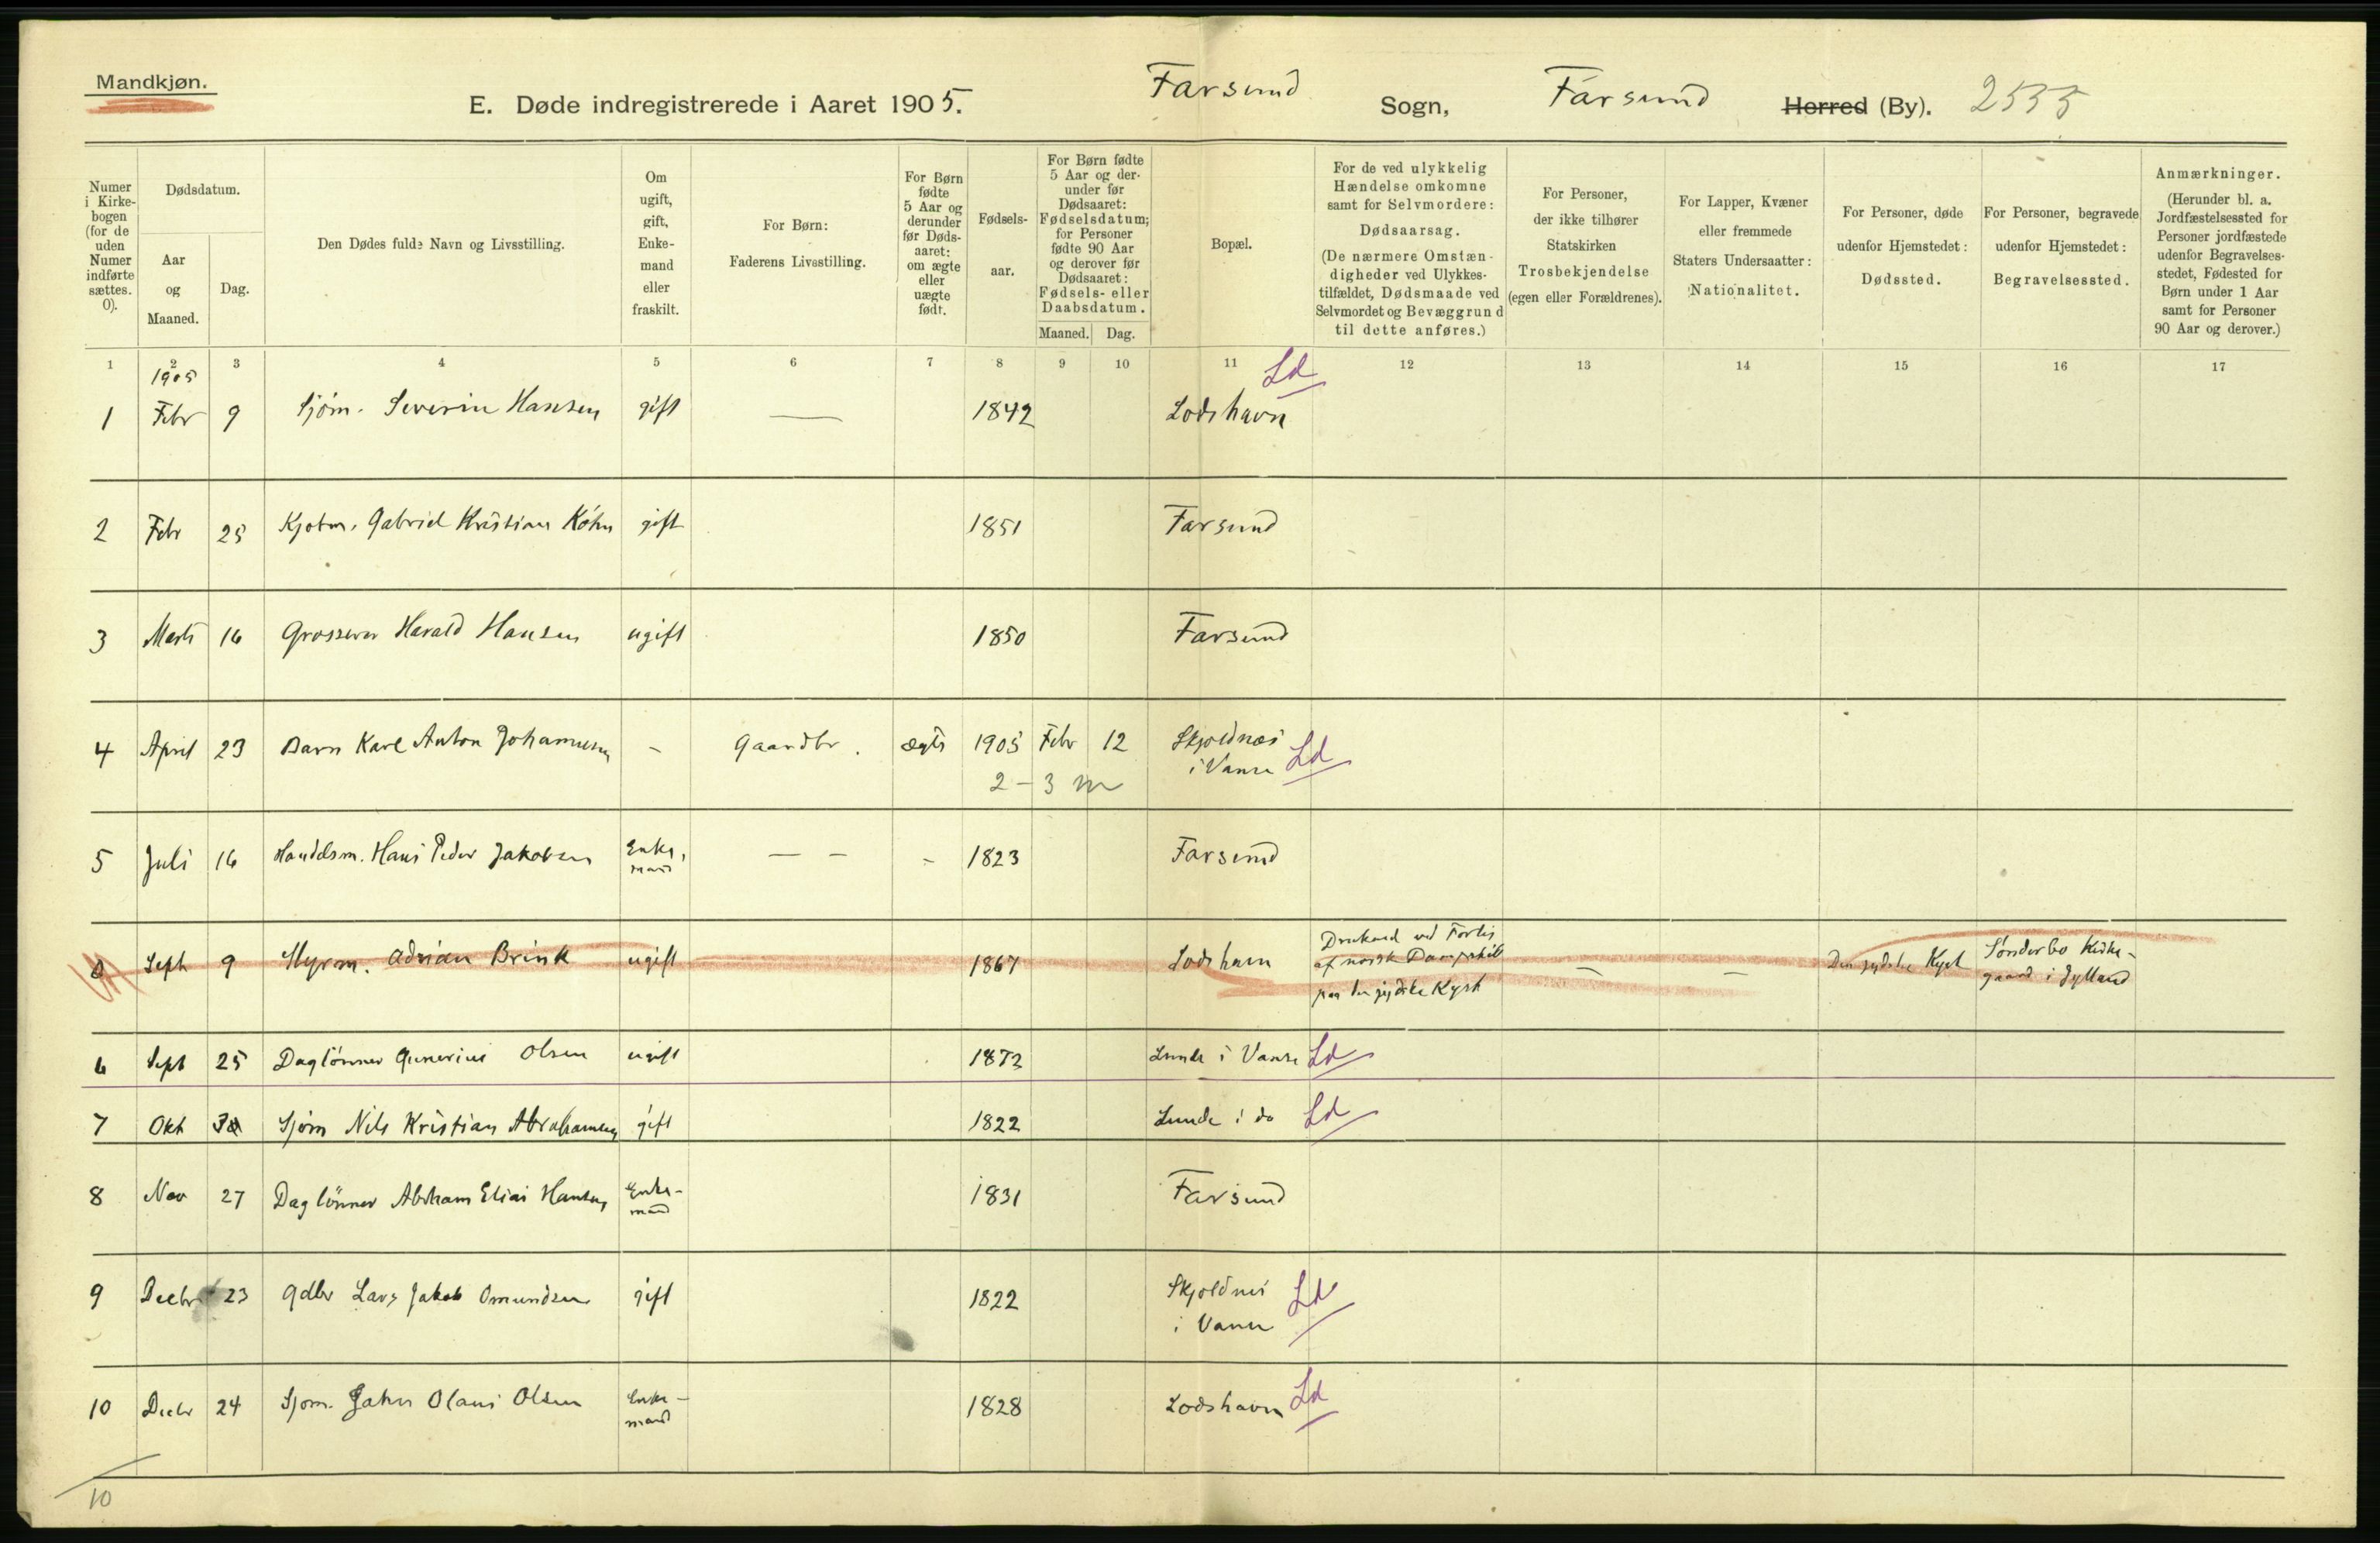 Mandkjøn.
E. Døde indregistrerede i Aaret 1905. Farsund Sogn, Farsund Herred (By). 2535
Numer i Kirke-bogen (for de uden Numer indførte sættes. 0).
Dødsdatum.
Aar og Maaned.
Dag.
Den Dødes fulde Navn og Livsstilling.
Om ugift, gift, Enke-mand eller fraskilt.
For Børn: Faderens Livsstilling.
For Børn fødte 5 Aar og derunder før Døds-aaret: om ægte eller uægte født.
Fødsels-aar.
For Børn fødte 5 Aar og der-under før Dødsaaret: Fødselsdatum; for Personer fødte 90 Aar og derover før Dødsaaret: Fødsels- eller Daabsdatum.
Maaned. Dag.
Bopæl.
For de ved ulykkelig Hændelse omkomne samt for Selvmordere: Dødsaarsag. (De nærmere Omstæn-digheder ved Ulykkes-tilfældet, Dødsmaade ved Selvmordet og Bevæggrund til dette anføres.)
For Personer, der ikke tilhører Statskirken Trosbekjendelse (egen eller Forældrenes).
For Lapper, Kvæner eller fremmede Staters Undersaatter: Nationalitet.
For Personer, døde udenfor Hjemstedet: Dødssted.
For Personer, begravede udenfor Hjemstedet: Begravelsessted.
Anmærkninger. (Herunder bl. a. Jordfæstelsessted for Personer jordfæstede udenfor Begravelses-stedet, Fødested for Børn under 1 Aar samt for Personer 90 Aar og derover.)
1 2 3 4 5 6 7 8 9 10 11 12 13 14 15 16 17
1905
1 Febr 9 Sjøm. Severin Hansen gift — 1842 Lodshavn Ld
2 Febr 25 Kjøbm. Gabriel Kristian Køhn gift 1851 Farsund
3 Marts 16 Grosserer Harald Hansen ugift 1850 Farsund
4 April 23 Barn Karl Anton Johannesen – Gaardbr. ægte 1905 Febr 12 Skjoldnæs i Vanse Ld
2 – 3 m
5 Juli 16 Handelsm. Hans Peder Jakobsen Enke-mand — – – 1823 Farsund
0 Septb 9 Styrm. Adrian Brink ugift 1867 Lodshavn Druknet ved Forlis af norsk Dampskib paa den jydske Kyst — – Den jydske Kyst Sønderbo Kirke-gaard i Jylland
6 Sept 25 Daglønner Gunerius Olsen ugift 1873 Lunde i Vanse Ld
7 Okt Sjøm Nils Kristian Abrahamsen gift 1822 Lunde i do Ld
8 Nov 27 Daglønner Abraham Elias Hansen Enke-mand 1831 Farsund
9 Decbr 23 Gdbr Lars Jakob Omundsen gift 1822 Skjoldnes i Vanse Ld
10 Decbr 24 Sjøm. Jahn Olaus Olsen Enke-mand 1828 Lodshavn Ld
10